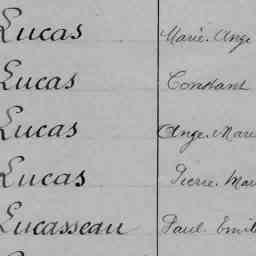 Lucas Marie. Ange
Lucas Constant
Lucas Ange. Marie
Lucas Pierre. Mari
Lucasseau Paul. Emile